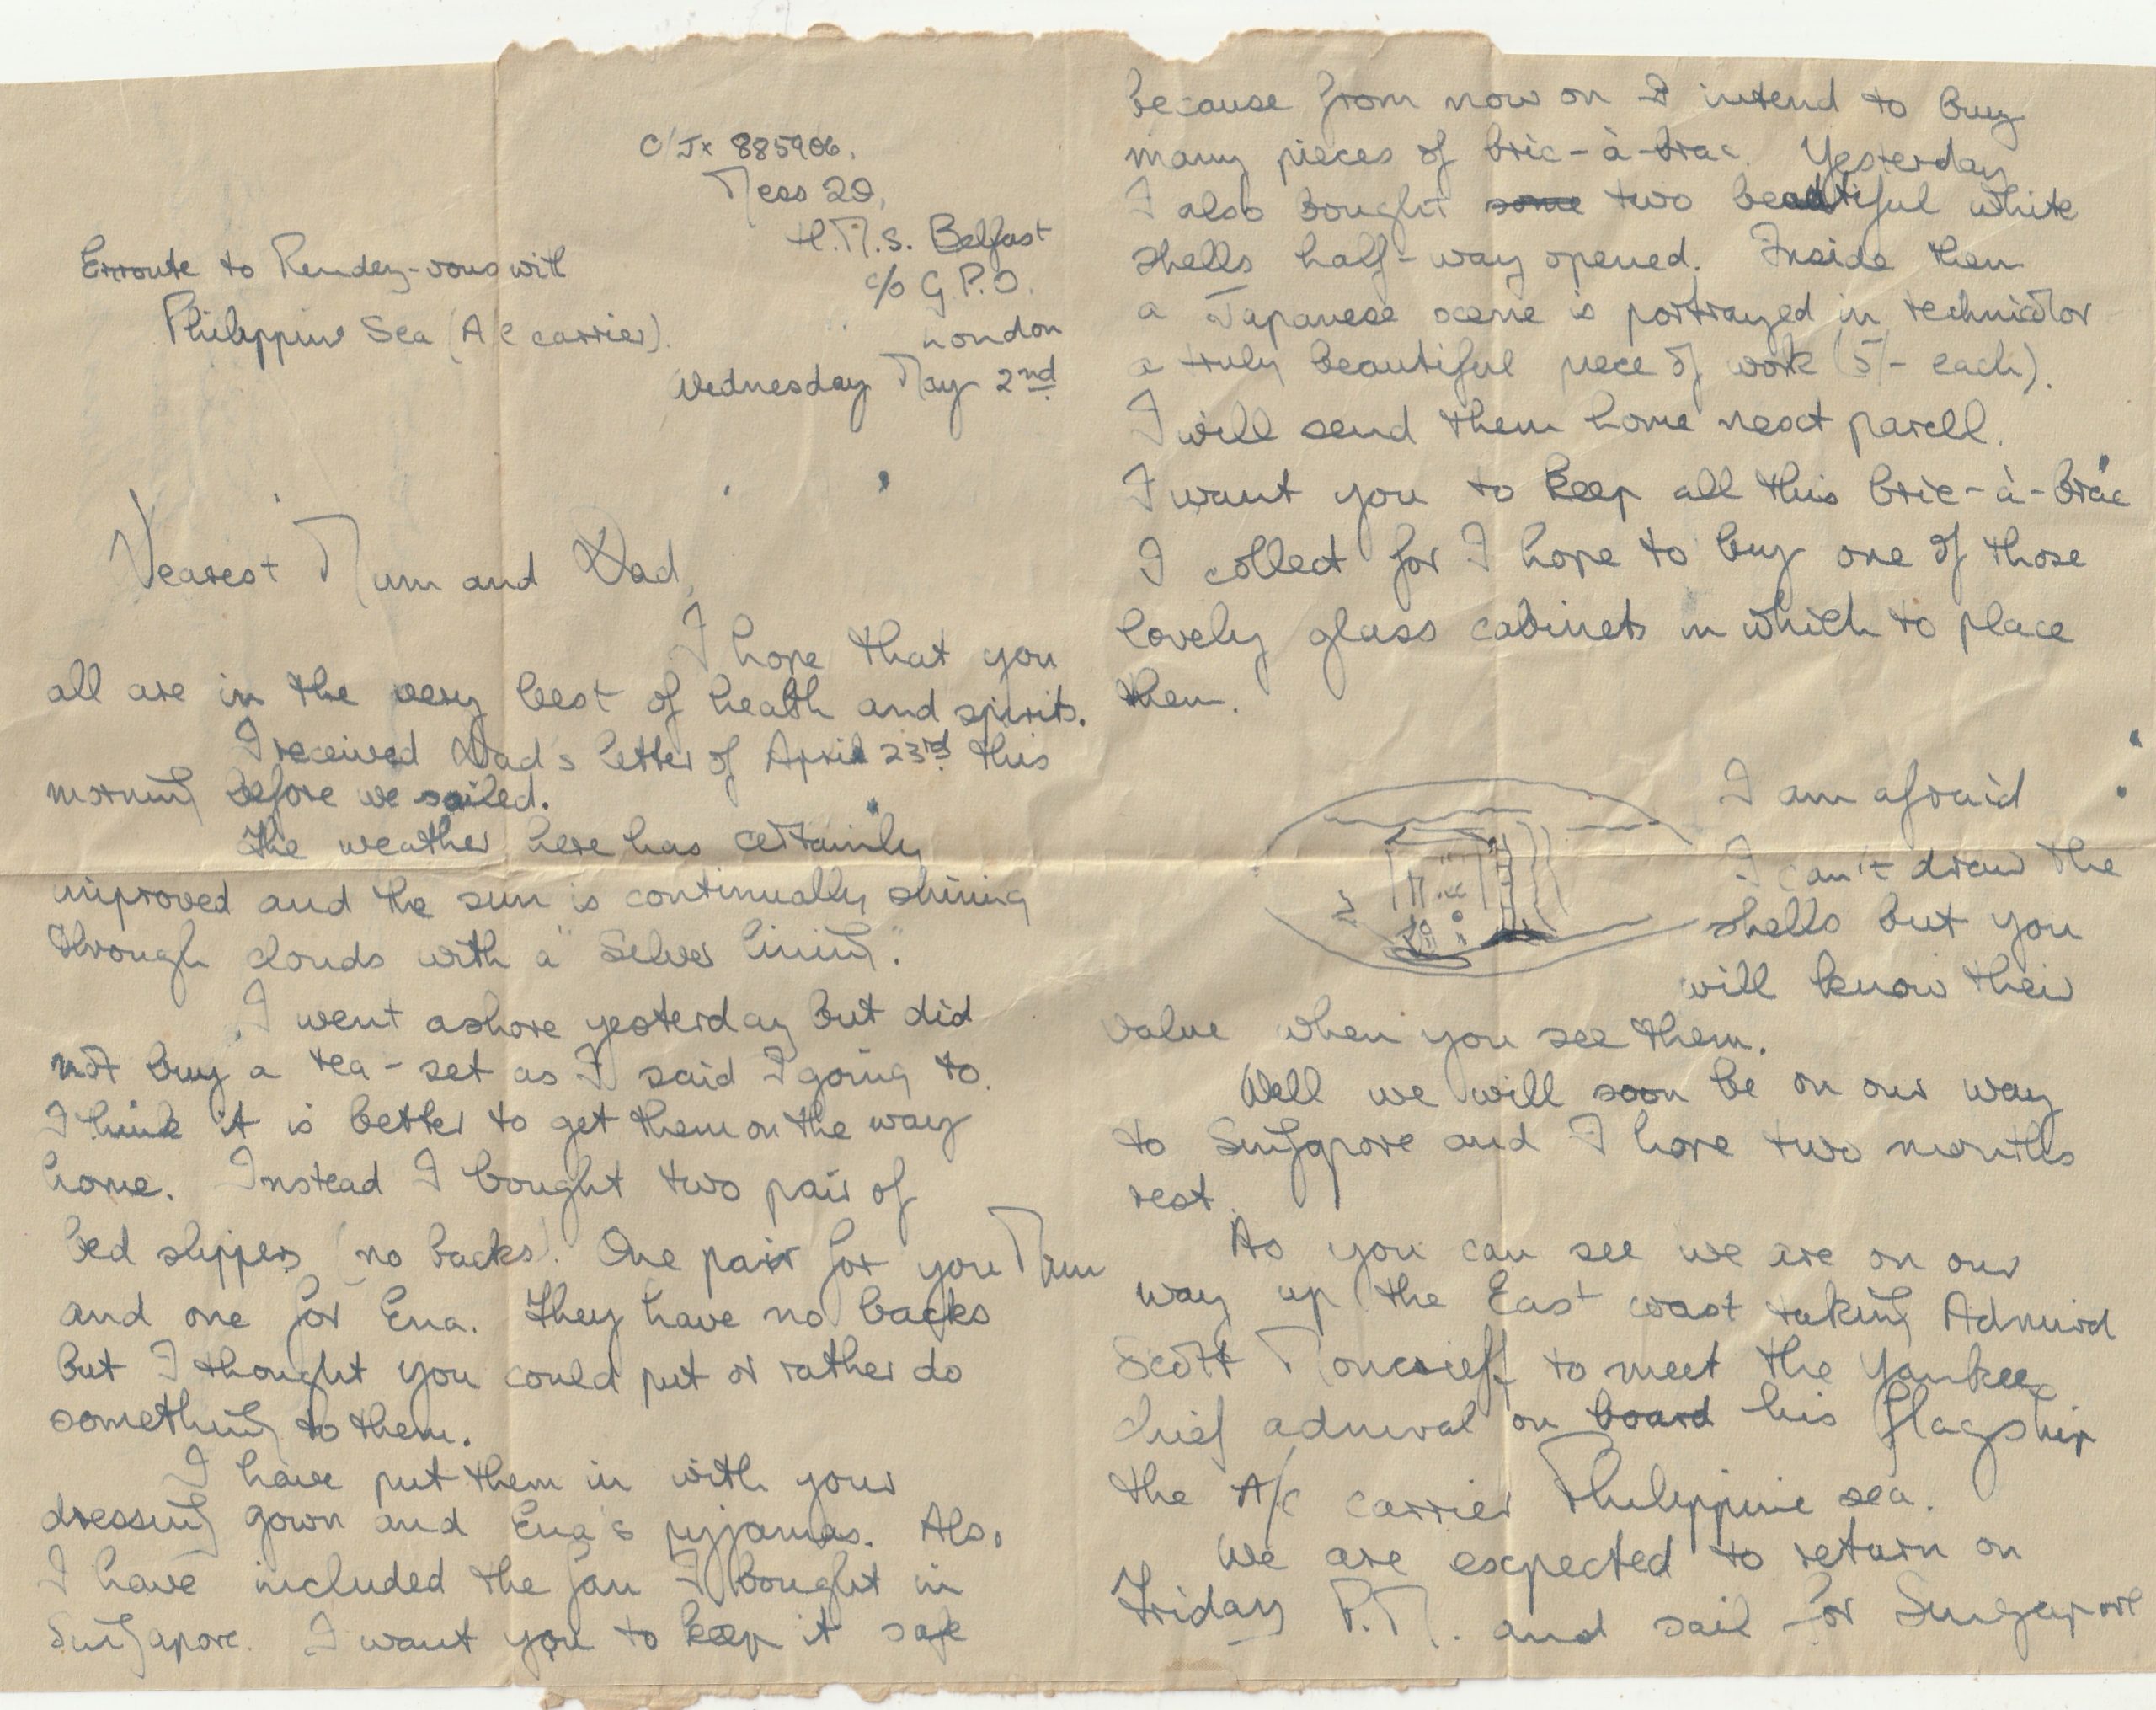 C/Jx 885906.
Mess 20,
H.M.S. Belfast
c/o G.P.O.
London
Wednesday May 2nd
Enroute to Rendez-vous with
Philippine Sea (A/C carrier).
Dearest Mum and Dad,
I hope that you
all are in the very best of health and spirits.
I received Dad's letter of April 23rd this
morning before we sailed.
The weather here has certainly
improved and the sun is continually shining
through clouds with a "Silver lining".
I went ashore yesterday but did
not buy a tea-set as I said I going to.
I think it is better to get them on the way
home. Instead I bought two pair of
bed slippers (no backs). One pair for you Mum
and one for Ena. They have no backs
but I thought you could put or rather do
something to them.
I have put them in with your
dressing gown and Ena's pyjamas. Also
I have included the fan I bought in
Singapore. I want you to keep it safe
because from now on I intend to buy
many pieces of bric-à-brac. Yesterday
I also bought some two beautiful white
shells half-way opened. Inside them
a Japanese scene is portrayed in technicolor
a truly beautiful piece of work (5/- each).
I will send them home next parcell.
I want you to keep all this bric-à-brac
I collect for I hope to buy one of those
lovely glass cabinets in which to place
them.
I am afraid
I can't draw the
shells but you
will know their
value when you see them.
Well we will soon be on our way
to Singapore and I hope two months
rest.
As you can see we are on our
way up the East coast taking Admiral
Scott Moncrieff to meet the Yankee
chief admiral on board his flagship
the A/C carrier Philippine sea.
We are expected to return on
Friday P.M. and sail for Singapore